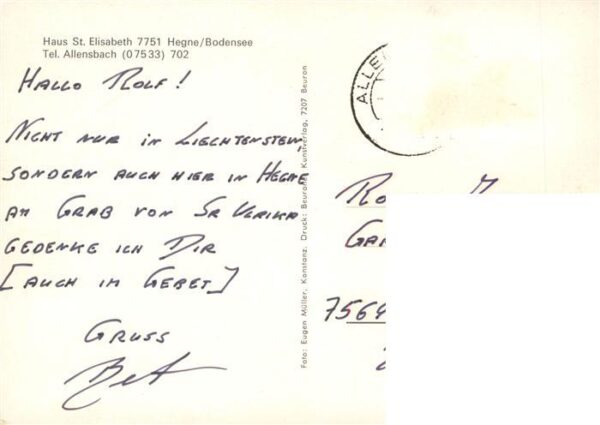 Haus St. Elisabeth 7751 Hegne/Bodensee
Tel. Allensbach (07533) 702
HALLO ROLF!
NICHT NUR IN LIECHTENSTEIN,
SONDERN AUCH HIER IN HEGNE
AM GRAB VON SR ULRIKA
GEDENKE ICH DIR
[AUCH IM GEBET]
GRUSS
Foto: Eugen Müller, Konstanz. Druck: Beuroner Kunstverlag, 7207 Beuron
ALLE
RO
GA
7564